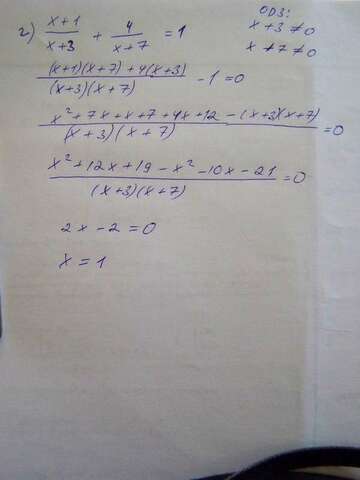 2) (x+1)/(x+3) + 4/(x+7) = 1
ОДЗ:
x+3≠0
x+7≠0
((x+1)(x+7)+4(x+3))/((x+3)(x+7)) - 1 = 0
(x²+7x+x+7+4x+12-(x+3)(x+7))/((x+3)(x+7)) = 0
(x²+12x+19-x²-10x-21)/((x+3)(x+7)) = 0
2x-2=0
x=1